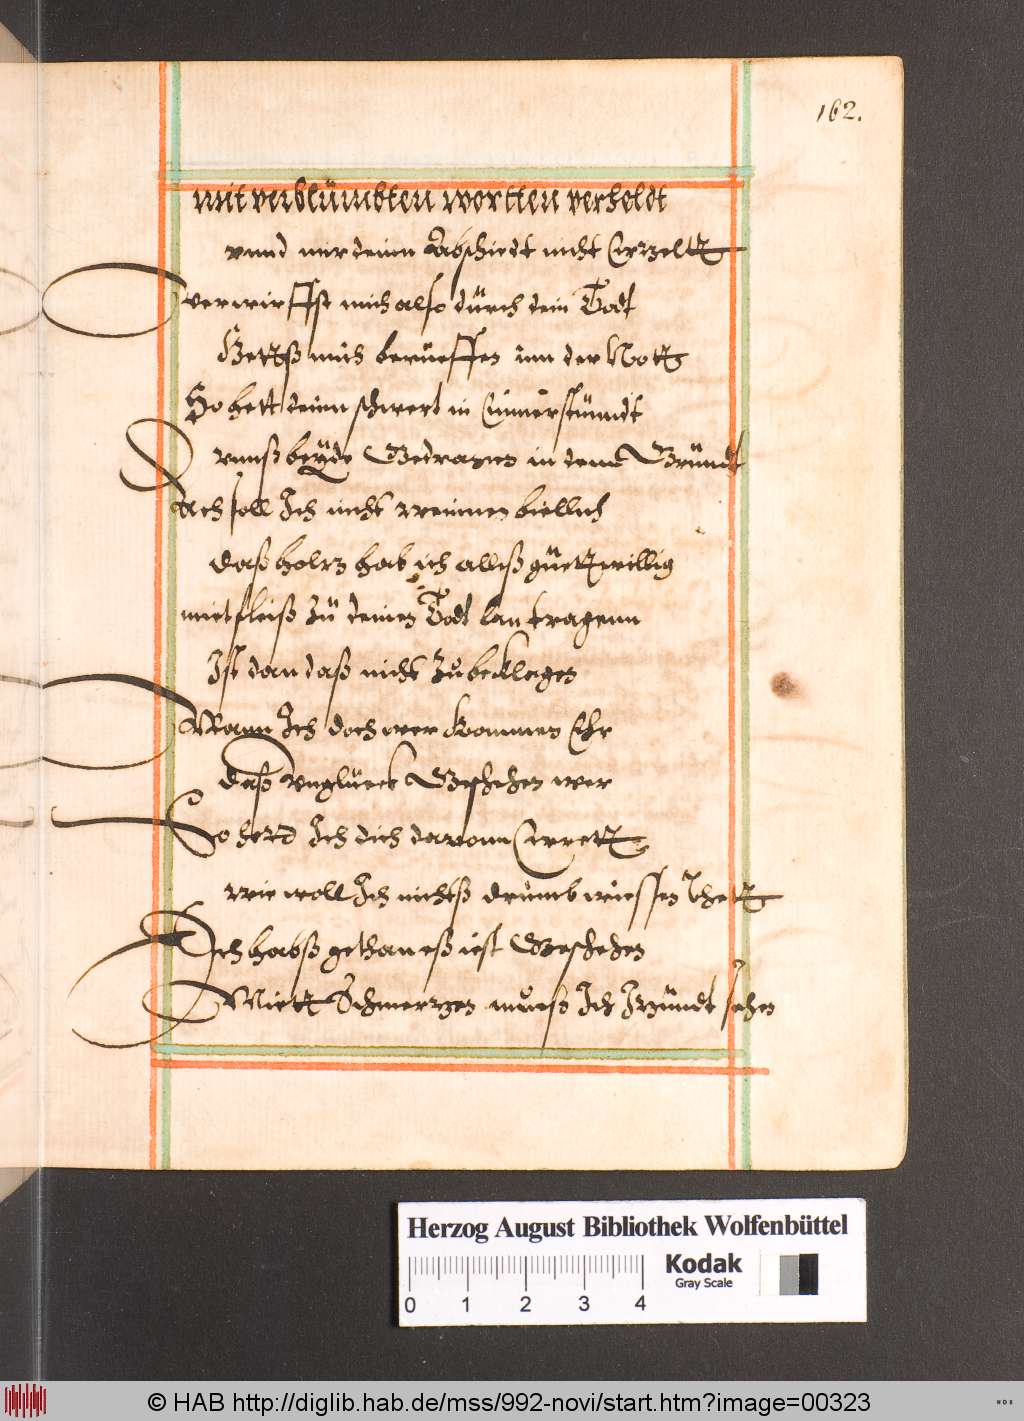 162.
mit verblümbten wortten verheldt
vnnd mir deinn Abschiedt nicht Erzeltt
verwirffst mich also dürch dein Todt
Hettß mich berueffen inn der Nott
So hett deinn schwert in Einner stünndt
vnnß beÿde Getragen in denn Gründt
Ach soll Ich nicht weinnen biellich
daß holtz hab ich alleß güettwillig
mit fleiß zü deinen Todt lan tragenn
Ist dan daß nicht zu beklagen
Wann Ich doch wer kommen Ehr
daß vnglüeck Geschehen wer
So hett Ich dich davonn Errett
wie woll Ich nichtß drumb wiessen thett
Ich habß gethan eß iest Geschehen
Miett Schmertzen mueß Ich Itzündt sehen
Herzog August Bibliothek Wolfenbüttel
Kodak
Gray Scale
0 1 2 3 4
© HAB http://diglib.hab.de/mss/992-novi/start.htm?image=00323